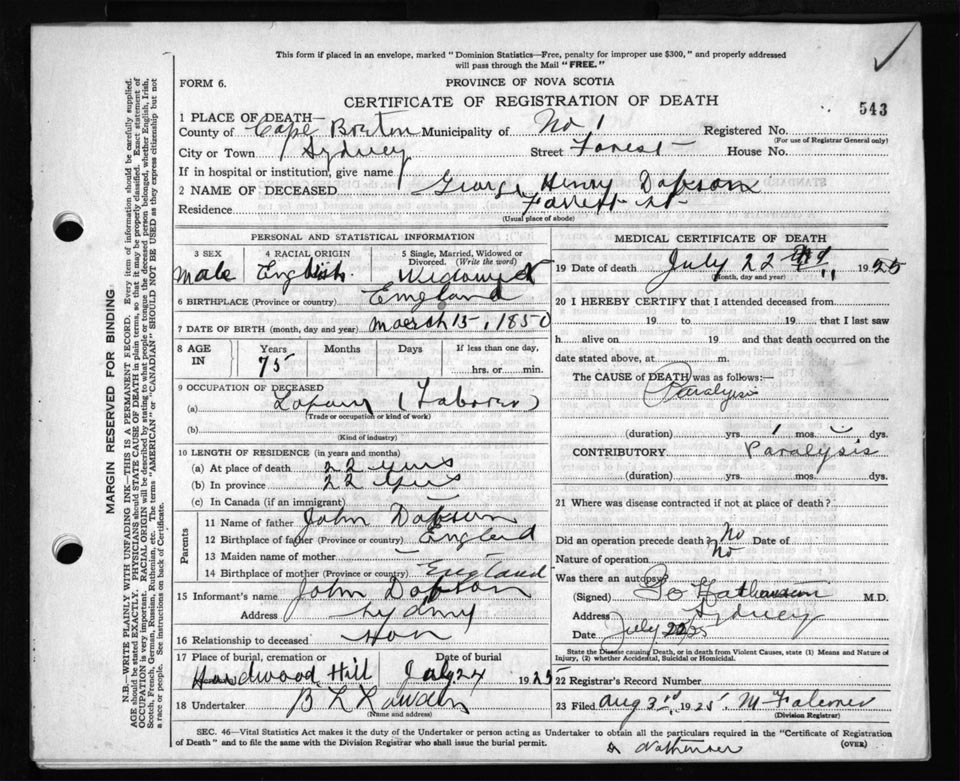 This form if placed in an envelope, marked "Dominion Statistics—Free, penalty for improper use $300," and properly addressed
will pass through the Mail "FREE."
FORM 6.
PROVINCE OF NOVA SCOTIA
CERTIFICATE OF REGISTRATION OF DEATH
543
1 PLACE OF DEATH—
County of Cape Breton Municipality of No 1 Registered No.
(For use of Registrar General only)
City or Town Sydney Street Forest House No.
If in hospital or institution, give name
2 NAME OF DECEASED George Henry Dobson
Residence St
(Usual place of abode)
PERSONAL AND STATISTICAL INFORMATION
3 SEX 4 RACIAL ORIGIN 5 Single, Married, Widowed or Divorced. (Write the word)
Male English Widowed
6 BIRTHPLACE (Province or country) England
7 DATE OF BIRTH (month, day and year) March 15, 1850
8 AGE IN Years Months Days If less than one day,
75 hrs. or min.
9 OCCUPATION OF DECEASED
(a) (Laborer)
(Trade or occupation or kind of work)
(b)
(Kind of industry)
10 LENGTH OF RESIDENCE (in years and months)
(a) At place of death 22 yrs
(b) In province 22 yrs
(c) In Canada (if an immigrant)
Parents
11 Name of father John Dobson
12 Birthplace of father (Province or country) England
13 Maiden name of mother —
14 Birthplace of mother (Province or country) England
15 Informant's name John Dobson
Address Sydney
16 Relationship to deceased Son
17 Place of burial, cremation or Date of burial
Hardwood Hill July 24 1925
18 Undertaker B L
(Name and address)
MEDICAL CERTIFICATE OF DEATH
19 Date of death July 22 1925
(Month, day and year)
20 I HEREBY CERTIFY that I attended deceased from
19 to 19 that I last saw
h alive on 19 and that death occurred on the
date stated above, at m.
The CAUSE of DEATH was as follows:—
Paralysis
(duration) yrs. 1 mos. — dys.
CONTRIBUTORY Paralysis
(duration) yrs. mos. dys.
21 Where was disease contracted if not at place of death?
Did an operation precede death? No Date of
Nature of operation No
Was there an autopsy
(Signed) M.D.
Address Sydney
Date July 22 25
State the Disease causing Death, or in death from Violent Causes, state (1) Means and Nature of
Injury, (2) whether Accidental, Suicidal or Homicidal.
22 Registrar's Record Number
23 Filed Aug 3rd 1925 M
(Division Registrar)
SEC. 46—Vital Statistics Act makes it the duty of the Undertaker or person acting as Undertaker to obtain all the particulars required in the "Certificate of Registration
of Death" and to file the same with the Division Registrar who shall issue the burial permit.
(OVER)
MARGIN RESERVED FOR BINDING
N.B.—WRITE PLAINLY WITH UNFADING INK—THIS IS A PERMANENT RECORD. Every item of information should be carefully supplied.
AGE should be stated EXACTLY. PHYSICIANS should STATE CAUSE OF DEATH in plain terms, so that it may be properly classified. Exact statement of
OCCUPATION is very important. RACIAL ORIGIN will be described by stating to what people or tongue the deceased person belonged, whether English, Irish,
Scotch, French, German, Russian, Ruthenian, etc. The terms "AMERICAN" or "CANADIAN" SHOULD NOT BE USED as they express citizenship but not
a race or people. See instructions on back of Certificate.